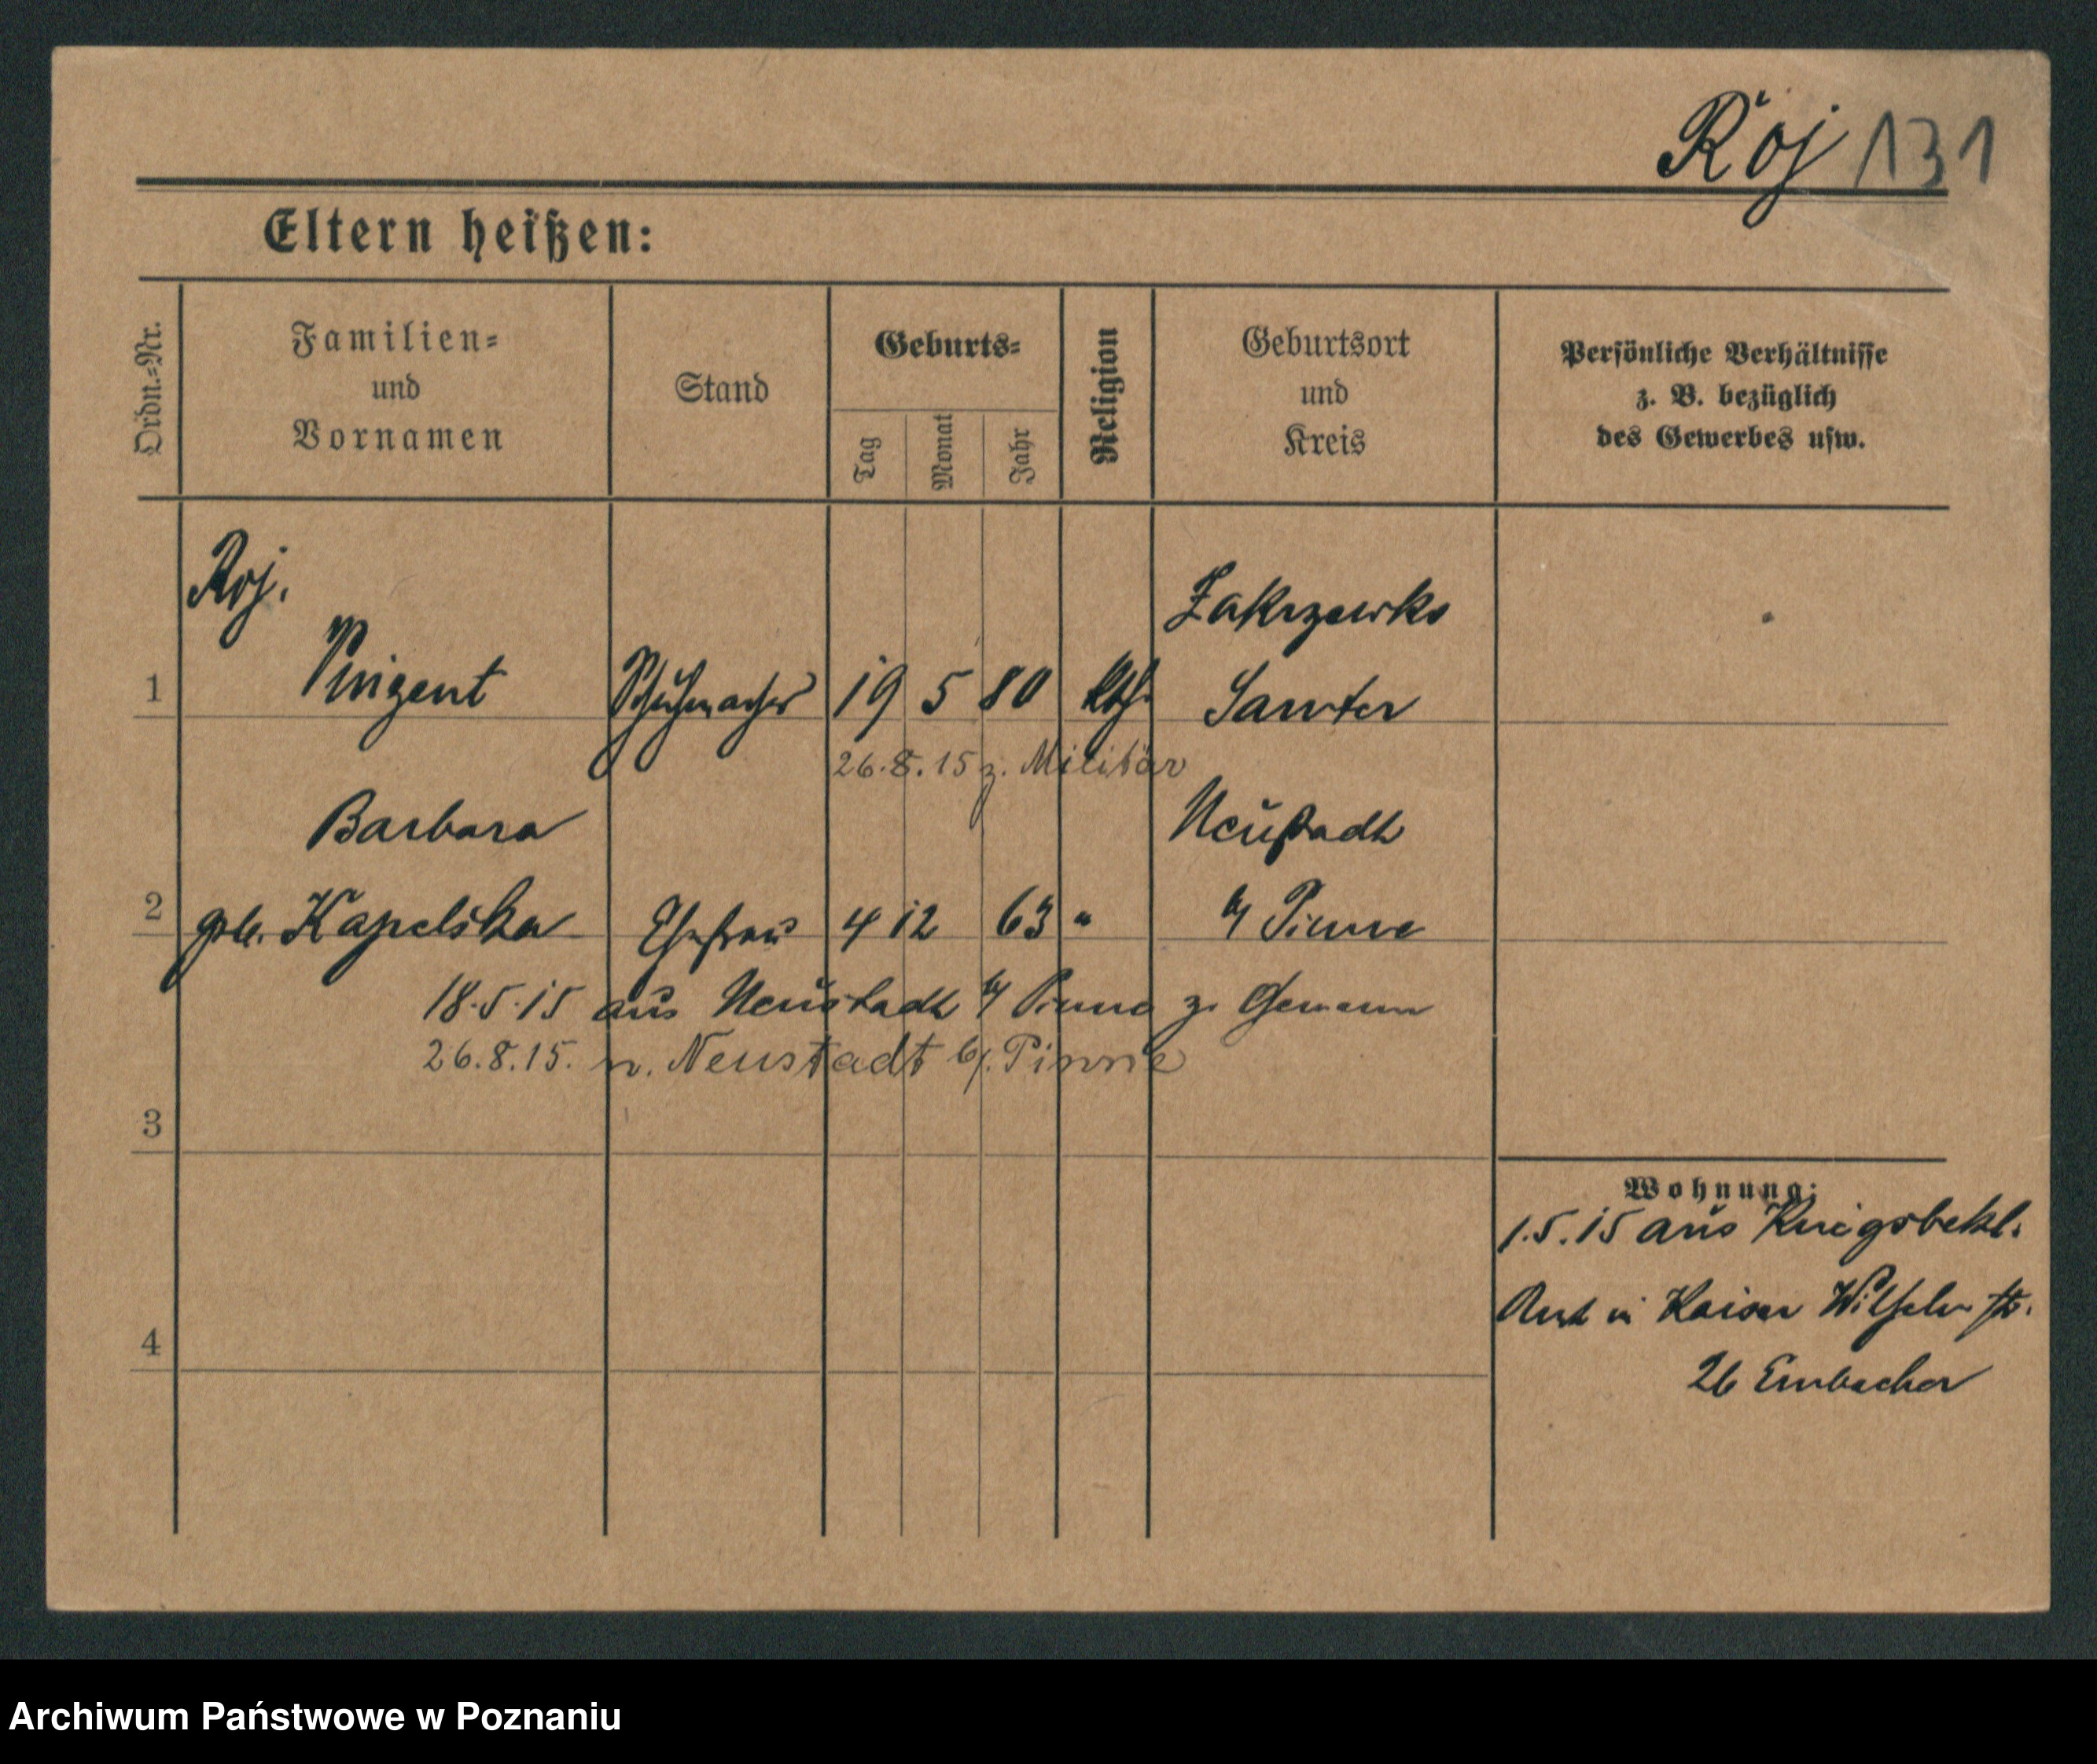 Roj 131
Eltern heißen:
Ordn.-Nr.
Familien-
und
Vornamen
Stand
Geburts-
Tag
Monat
Jahr
Religion
Geburtsort
und
Kreis
Persönliche Verhältnisse
z. B. bezüglich
des Gewerbes usw.
Roj.
Zakrzewko
1 Vinzent Schuhmacher 19 5 80 Kth. Samter
26.8.15 z. Militär
Barbara Neustadt
2 geb. Kapelska Ehefrau 4 12 63 " b/ Pinne
18.5.15 aus Neustadt b/ Pinne z.
26.8.15. n. Neustadt b/. Pinne
3
Wohnung:
1.5.15 aus
4
in Kaiser Wilhelm str.
26
Archiwum Państwowe w Poznaniu